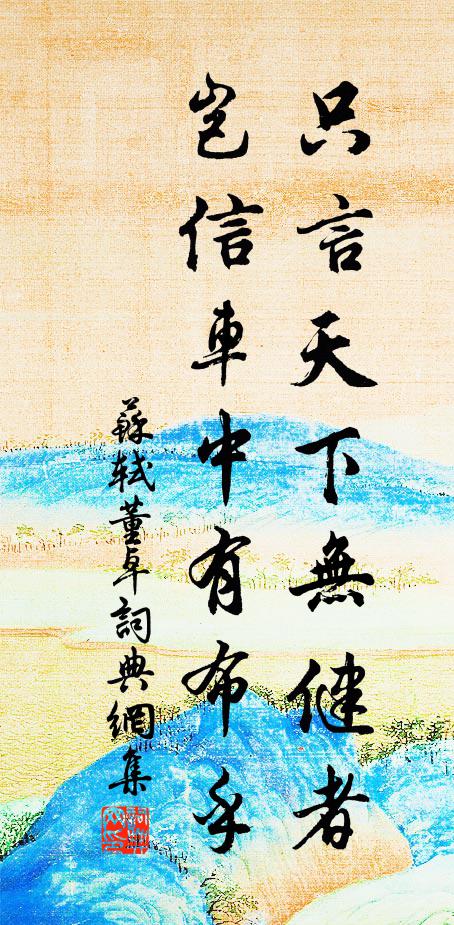 只言天下無健者
豈信車中有布乎
蘇軾董卓詞典網集